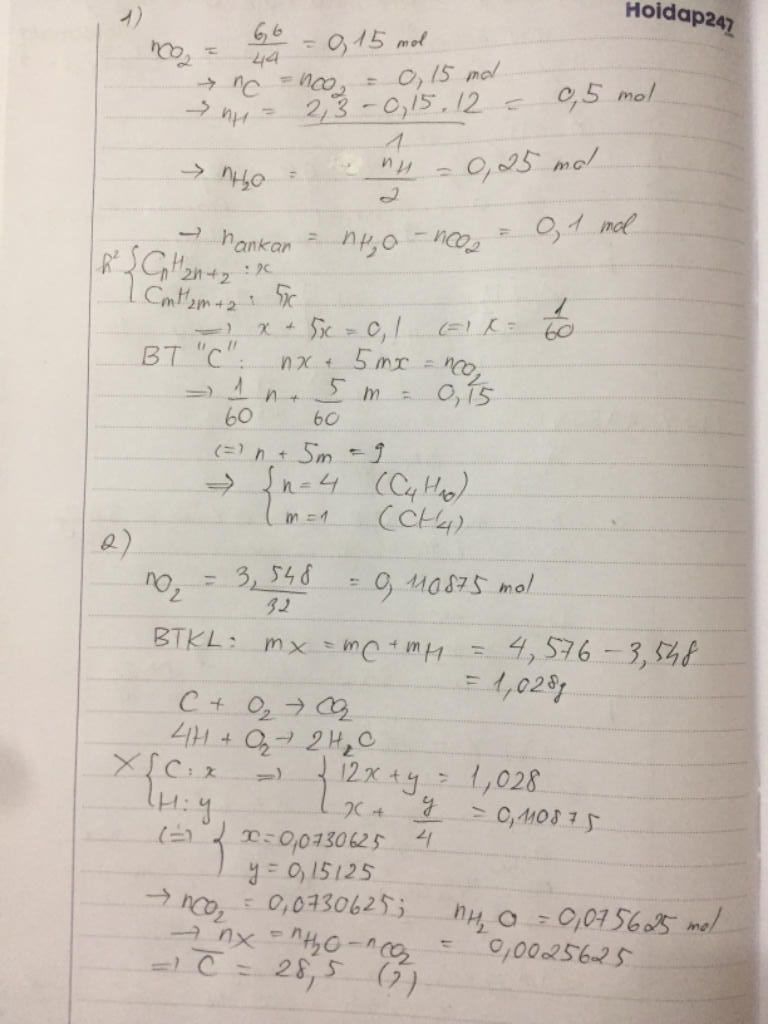 Hoidap247
1)
nCO₂ = 6,6/44 = 0,15 mol
→ nC = nCO₂ = 0,15 mol
→ nH = (2,3 - 0,15.12)/1 = 0,5 mol
→ nH₂O = nH/2 = 0,25 mol
→ nankan = nH₂O - nCO₂ = 0,1 mol
h² { CnH2n+2 : x
CmH2m+2 : 5x
=> x + 5x = 0,1 (=) x = 1/60
BT "C": nx + 5mx = nCO₂
=> 1/60 n + 5/60 m = 0,15
(=) n + 5m = 9
=> { n = 4 (C₄H₁₀)
m = 1 (CH₄)
2)
nO₂ = 3,548/32 = 0,110875 mol
BTKL: mX = mC + mH = 4,576 - 3,548
= 1,028g
C + O₂ → CO₂
4H + O₂ → 2H₂O
X { C : x => { 12x + y = 1,028
H : y x + y/4 = 0,110875
(=) { x = 0,0730625
y = 0,15125
→ nCO₂ = 0,0730625; nH₂O = 0,075625 mol
→ nX = nH₂O - nCO₂ = 0,0025625
=> C̅ = 28,5 (?)